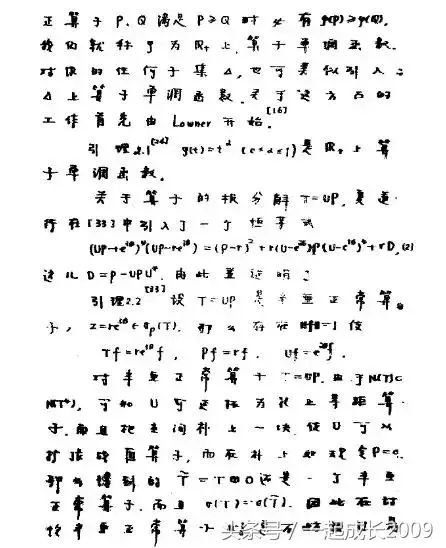 正算子 P、Q 满足 P≥Q 时必有 g(P)≥g(Q),
我们就称 g 为 R+ 上算子单调函数.
对 的任何子集 Δ,也可类似引入
Δ上算子单调函数.关于这方面的
工作首先由 Lowner 开始.[16]
引理2.1 g(t)=t^α 是 R+ 上算
子单调函数.
关于算子的极分解 T=UP,夏道
行在[33]中引入了一个恒等式
(UP-re^{iθ})*(UP-re^{iθ}) = (P-r)²+r(U-e^{iθ})*P(U-e^{iθ})+rD,(2)
这儿 D=P-UPU*.由此并证明:
引理2.2 [33] 设 T=UP 是半亚正常算
子,z=re^{iθ}∈σp(T).那么存在 ‖f‖=1 使
Tf=re^{iθ}f, Pf=rf, Uf=e^{iθ}f.
对半亚正常算子 T=UP,由于 N(T)⊂
N(T*),可知 U 可延拓为 上等距算
子.而且把空间补上一块,使 U 可以
扩张成酉算子,而在补上 规定 P=0.
那么得到的 T̃=T⊕0 还是一个半亚
正常算子,而且 σ(T)=σ(T̃).因此在讨
论半亚正常算子
头条号/一起成长2009